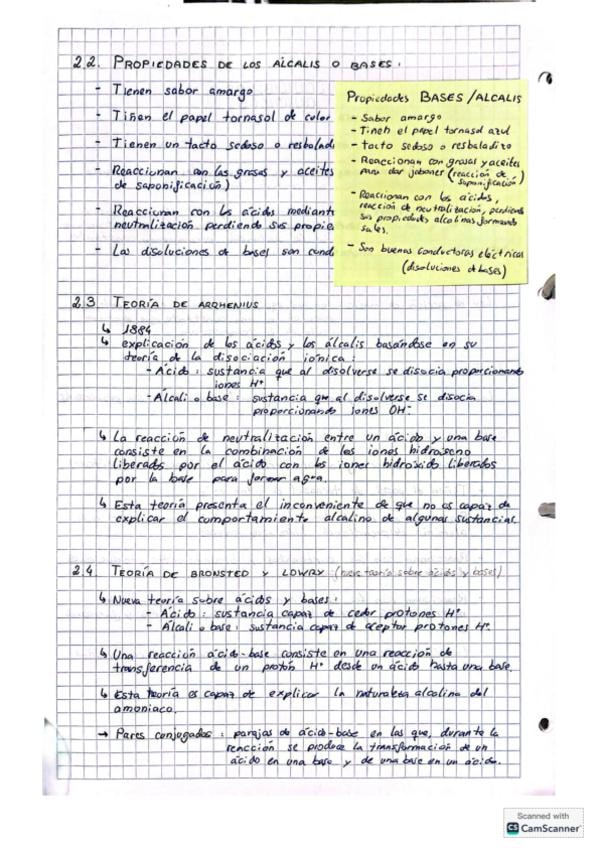 2.2. PROPIEDADES DE LOS ÁLCALIS O BASES.
- Tienen sabor amargo
- Tiñen el papel tornasol de color
- Tienen un tacto sedoso o resbalad
- Reaccionan con las grasas y aceites
de saponificación)
- Reaccionan con los ácidos mediant
neutralización perdiendo sus propie
- Las disoluciones de bases son cond
Propiedades BASES/ALCALIS
- Sabor amargo
- Tiñen el papel tornasol azul
- tacto sedoso o resbaladizo
- Reaccionan con grasas y aceites
para dar jabones (reacción de
saponificación)
- Reaccionan con los ácidos,
reacción de neutralización, perdiendo
sus propiedades alcalinas formando
sales.
- Son buenas conductoras eléctricas
(disoluciones de bases)
2.3 TEORÍA DE ARRHENIUS
↳ 1884
↳ explicación de los ácidos y los álcalis basándose en su
teoría de la disociación iónica:
- Ácido: sustancia que al disolverse se disocia proporcionando
iones H⁺
- Álcali o base: sustancia que al disolverse se disocia
proporcionando iones OH⁻
↳ La reacción de neutralización entre un ácido y una base
consiste en la combinación de los iones hidrógeno
liberados por el ácido con los iones hidróxido liberados
por la base para formar agua.
↳ Esta teoría presenta el inconveniente de que no es capaz de
explicar el comportamiento alcalino de algunas sustancias.
2.4. TEORÍA DE BRONSTED Y LOWRY (nueva teoría sobre ácidos y bases)
↳ Nueva teoría sobre ácidos y bases:
- Ácido: sustancia capaz de ceder protones H⁺
- Álcali o base: sustancia capaz de aceptar protones H⁺.
↳ Una reacción ácido-base consiste en una reacción de
transferencia de un protón H⁺ desde un ácido hasta una base.
↳ Esta teoría es capaz de explicar la naturaleza alcalina del
amoniaco.
→ Pares conjugados: parejas de ácido-base en las que, durante la
reacción se produce la transformación de un
ácido en una base y de una base en un ácido.
Scanned with
CS CamScanner